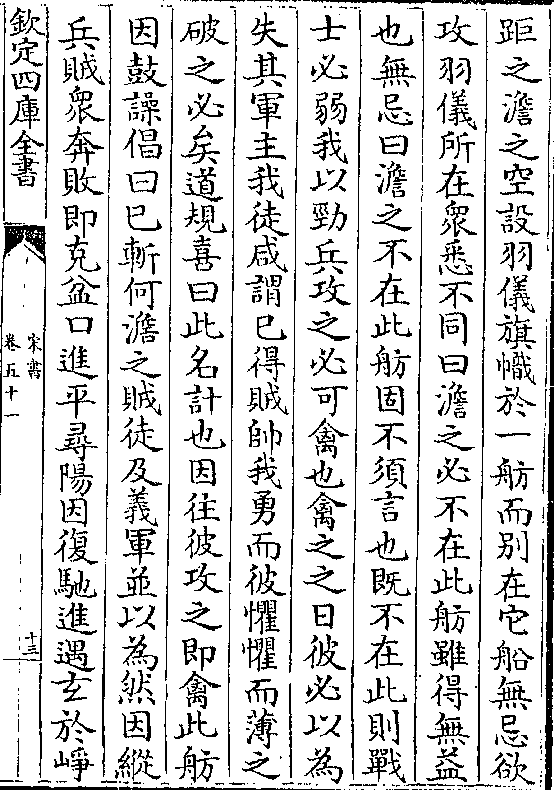 距之澹之空設羽儀旗幟於一舫而别在它船無忌欲
攻羽儀所在衆悉不同曰澹之必不在此舫雖得無益
也無忌曰澹之不在此舫固不須言也既不在此則戰
士必弱我以勁兵攻之必可禽也禽之之日彼必以為
失其軍主我徒咸謂已得賊帥我勇而彼懼懼而薄之
破之必矣道規喜曰此名計也因往彼攻之即禽此舫
因鼓譟倡曰已斬何澹之賊徒及義軍並以為然因縱
兵賊衆奔敗即克盆口進平尋陽因復馳進遇玄於崢
欽定四庫全書
宋書
卷五十一
十三